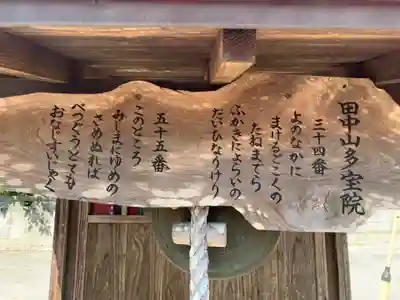 田中山多宝院
三十四番
よのなかに
まけるごこくの
たねまでら
ふかきによらいの
だいひなりけり
五十五番
このところ
みしまにゆめの
さめぬれば
べつぐうとても
おなじすいじゃく